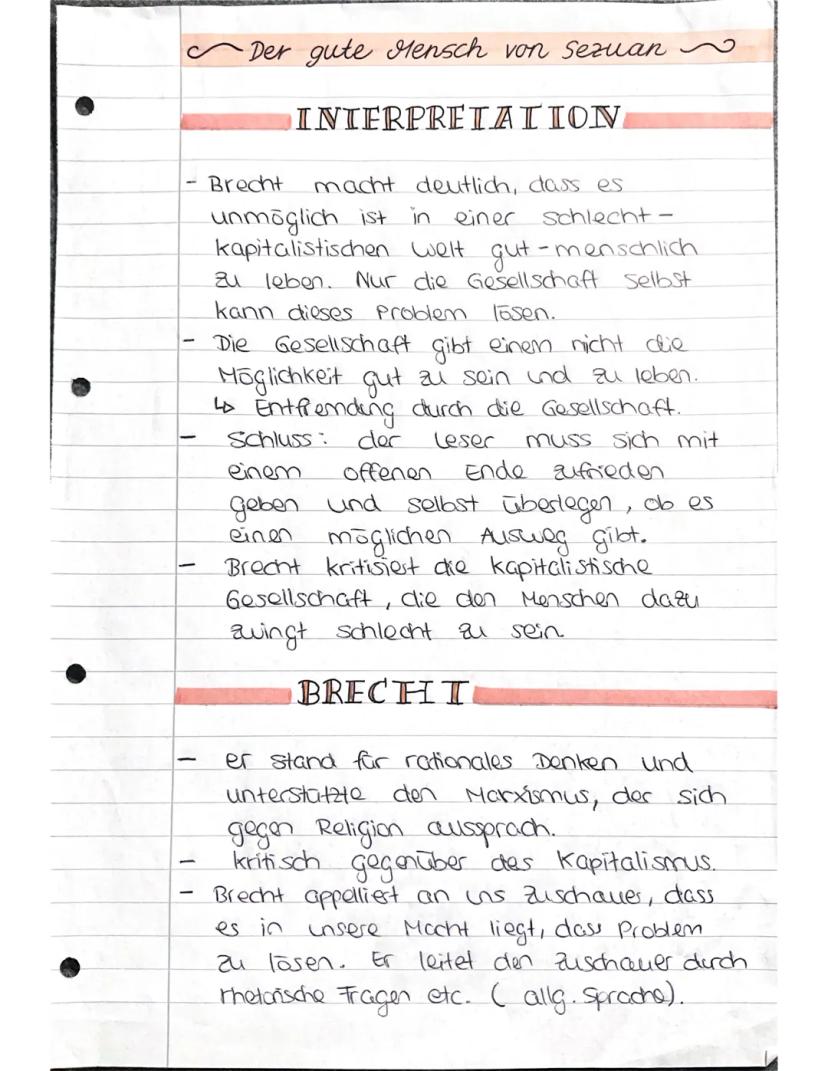 Der gute Mensch von Sezuan
INTERPRETATION
- Brecht macht deutlich, dass es
unmöglich ist in einer schlecht-
kapitalistischen Welt gut-menschlich
zu leben. Nur die Gesellschaft selbst
kann dieses Problem lösen.
- Die Gesellschaft gibt einem nicht die
Möglichkeit gut zu sein und zu leben.
↳ Entfremdung durch die Gesellschaft.
- Schluss: der Leser muss sich mit
einem offenen Ende zufrieden
geben und selbst überlegen, ob es
einen möglichen Ausweg gibt.
- Brecht kritisiert die kapitalistische
Gesellschaft, die den Menschen dazu
zwingt schlecht zu sein
BRECHT
- er stand für rationales Denken und
unterstützte den Marxismus, der sich
gegen Religion aussprach.
- kritisch gegenüber des Kapitalismus.
- Brecht appelliert an uns Zuschauer, dass
es in unsere Macht liegt, das Problem
zu lösen. Er leitet den Zuschauer durch
rhetorische Fragen etc. (allg. Sprache).